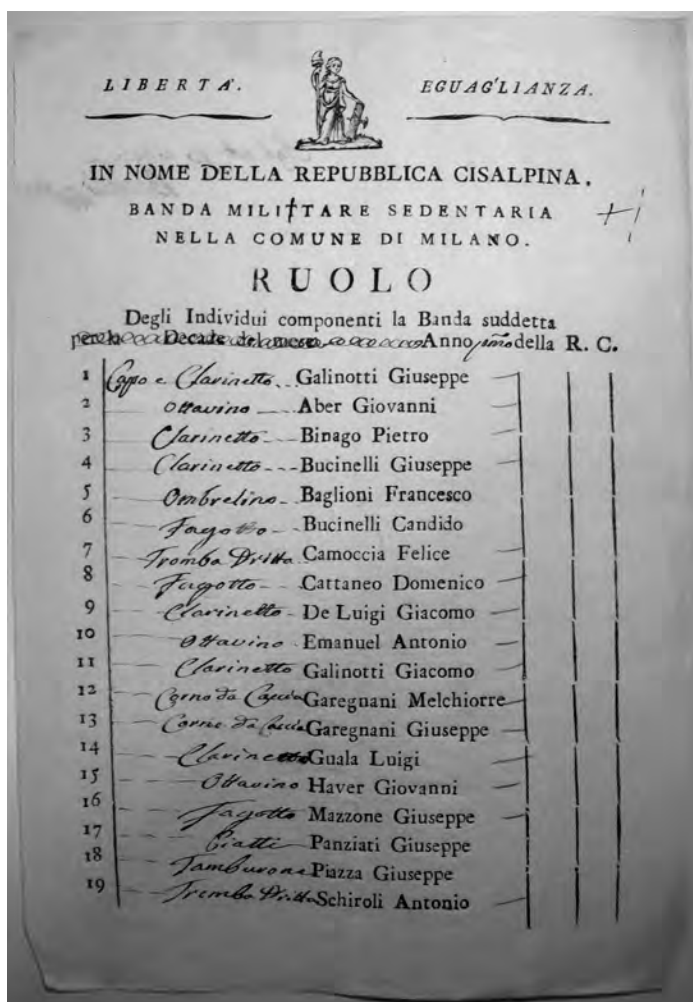 LIBERTA'. EGUAGLIANZA.
IN NOME DELLA REPUBBLICA CISALPINA.
BANDA MILITTARE SEDENTARIA
NELLA COMUNE DI MILANO.
RUOLO
Degli Individui componenti la Banda suddetta
per la Decade del mese Anno pmo della R. C.
1 Capo e Clarinetto Galinotti Giuseppe
2 Ottavino Aber Giovanni
3 Clarinetto Binago Pietro
4 Clarinetto Bucinelli Giuseppe
5 Ombrelino Baglioni Francesco
6 Fagotto Bucinelli Candido
7 Tromba Dritta Camoccia Felice
8 Fagotto Cattaneo Domenico
9 Clarinetto De Luigi Giacomo
10 Ottavino Emanuel Antonio
11 Clarinetto Galinotti Giacomo
12 Corno da Caccia Garegnani Melchiorre
13 Corno da Caccia Garegnani Giuseppe
14 Clarinetto Guala Luigi
15 Ottavino Haver Giovanni
16 Fagotto Mazzone Giuseppe
17 Piatti Panziati Giuseppe
18 Tamburone Piazza Giuseppe
19 Tromba Dritta Schiroli Antonio